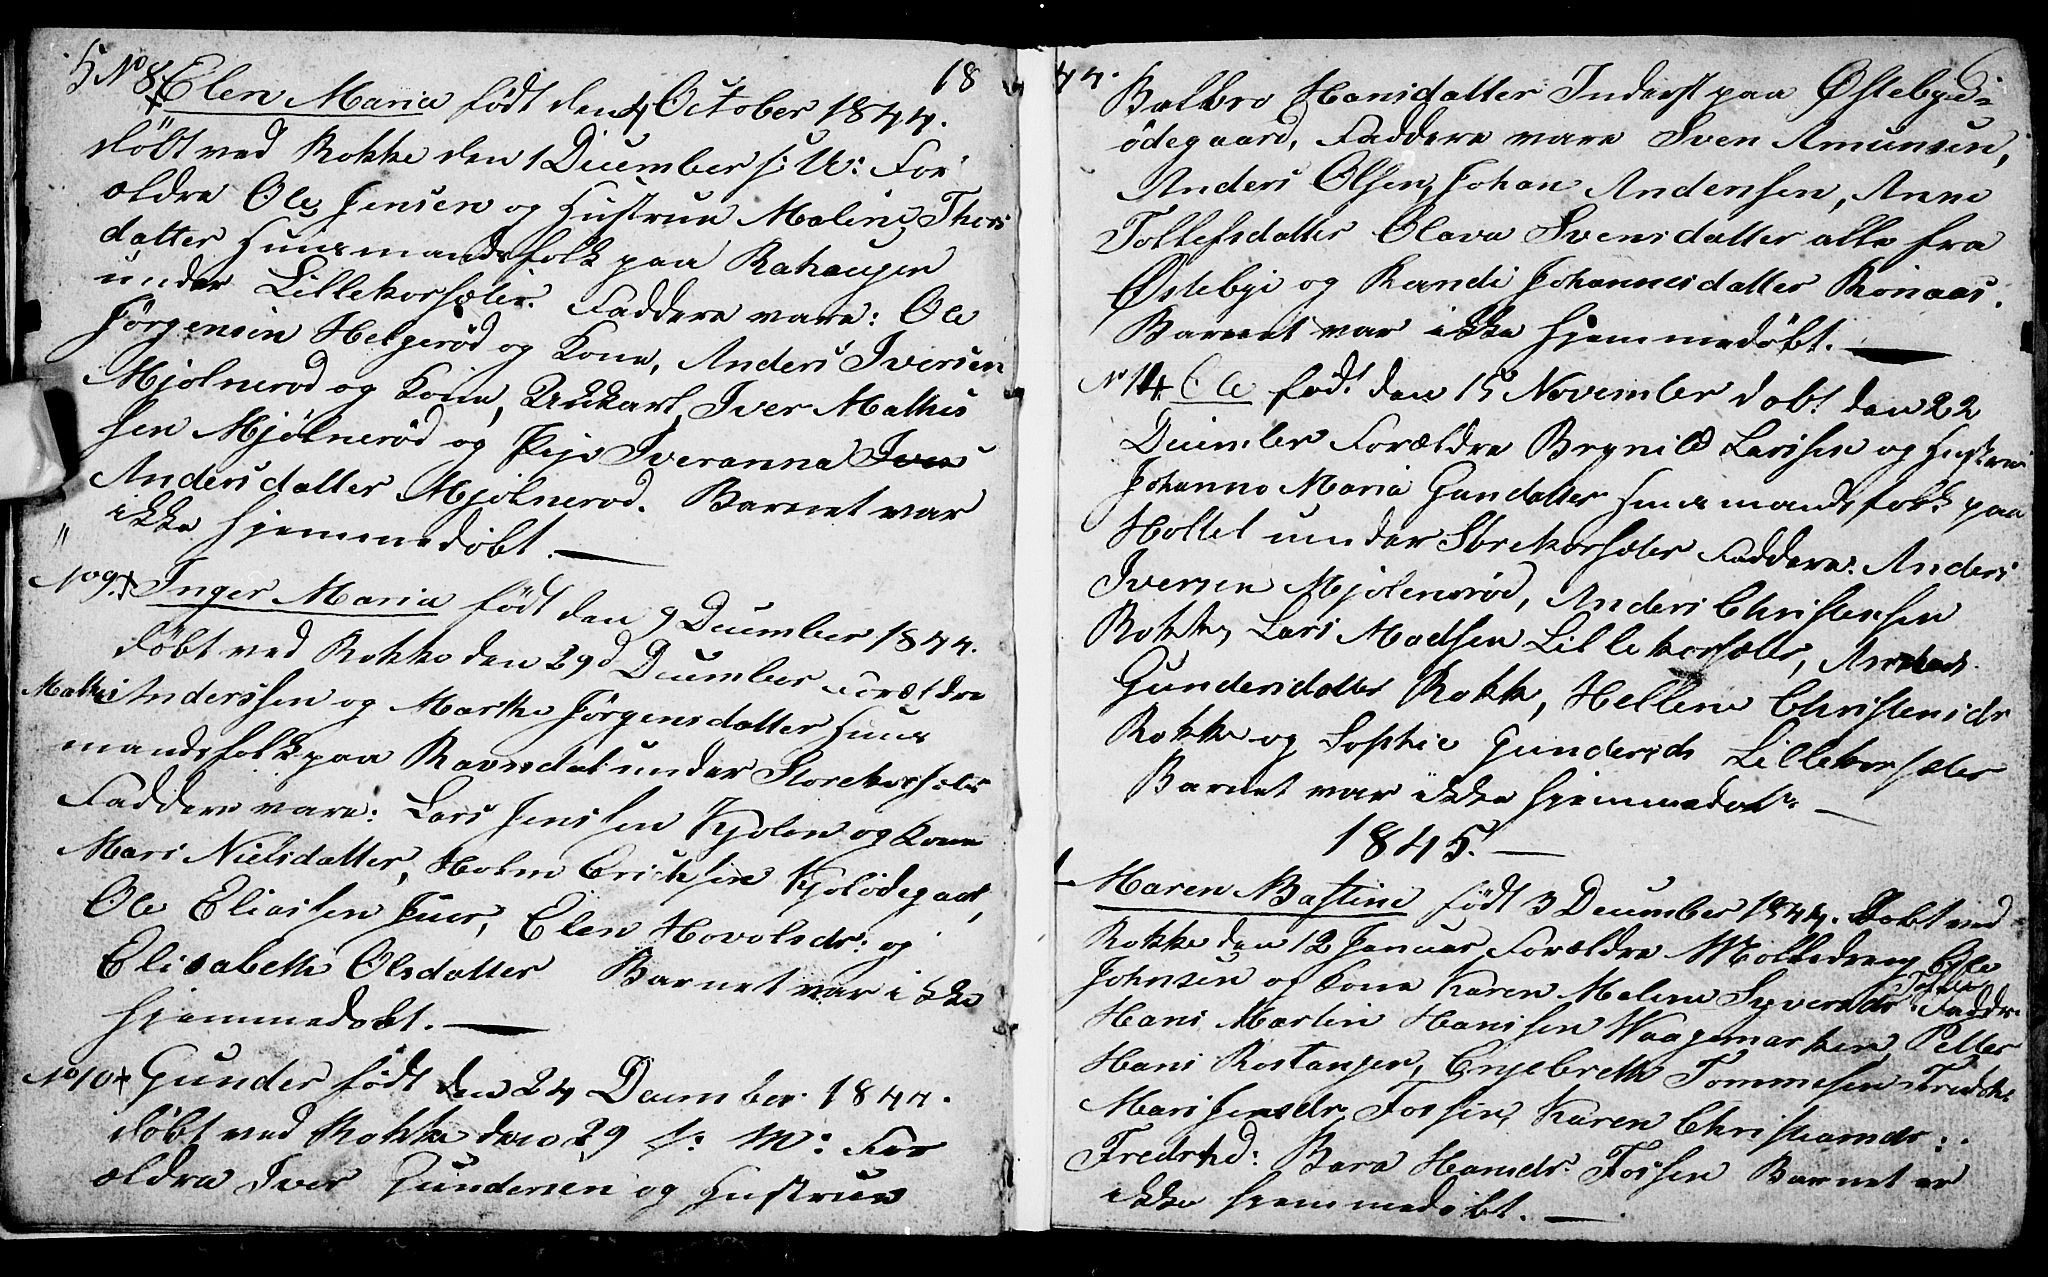 5 18
No 8 Elen Maria født den 4 October 1844.
döbt ved Rokke den 1 December s: A: For
ældre Ole Jensen og Hustrue Maline Thors
datter Huusmandsfolk paa Rahaugen
under Lillekorsæter. Faddere vare: Ole
Jörgensen Helgeröd og Kone, Anders Iversen
Mjölneröd og Kone, Ungkarl Iver Mathis
sen Mjölneröd og Pige Iveranna Ivers
Andersdatter Mjölneröd. Barnet var
ikke hjemmedöbt. —
No 9. Inger Maria födt den 9 December 1844.
döbt ved Rokke den 29d December Forældre
Mathis Anderssen og Marthe Jörgensdatter Huus
mandsfolk paa Ravndal under Storekorsæter
Faddere vare: Lars Jenssen Kjölen og Kone
Mari Nielsdatter, Holm Ericksen Kjölödegaard,
Ole Eliassen Juer, Elen Hovolsdr: og
Elisabeth Olsdatter Barnet var ikke
hjemmedöbt. —
No 10 Gunder födt den 24 December 1844.
döbt ved Rokke den 29 s: M: For
ældre Iver Gundersen og Hustrue
44. 6
Balbro Hansdatter Inderst paa Östebye-
ödegaard, Faddere vare Sven Amunsen,
Anders Olsen, Johan Andersen, Anne
Tollefsdatter Olava Svensdatter alle fra
Östebye og Randi Johannesdatter Rönaas.
Barnet var ikke hjemmedöbt. —
No 11 Ole föd den 15 November döbt den 22
December Forældre Brynild Larssen og Hustrue
Johanne Maria Gundatter Huusmandsfolk paa
Holtet under Storekorsæter Faddere: Anders
Iversen Mjölneröd, Anders Christensen
Rokke, Lars Madsen Lillekorsæter,
Gundersdatter Rokke, Hellene Christensdr
Rokke og Sophie Gundersdr Lillekorsæter
Barnet var ikke hjemmedöbt —
1845. —
1 Maren Bastine födt 3 December 1844. Döbt ved
Rokke den 12 Januar, Forældre Molledreng Ole
Johnsen og Kone Karen Malene Syversdr Fossen Faddr:
Hans Martin Hanssen Waagemarken, Petter
Hans Rostangen, Engebreth Tommesen Fredr
Mari Jensdr Fossen, Karen Christiansdr:
Fredrhd: Bara Hansdr Fossen Barnet er
ikke hjemmedöbt. —